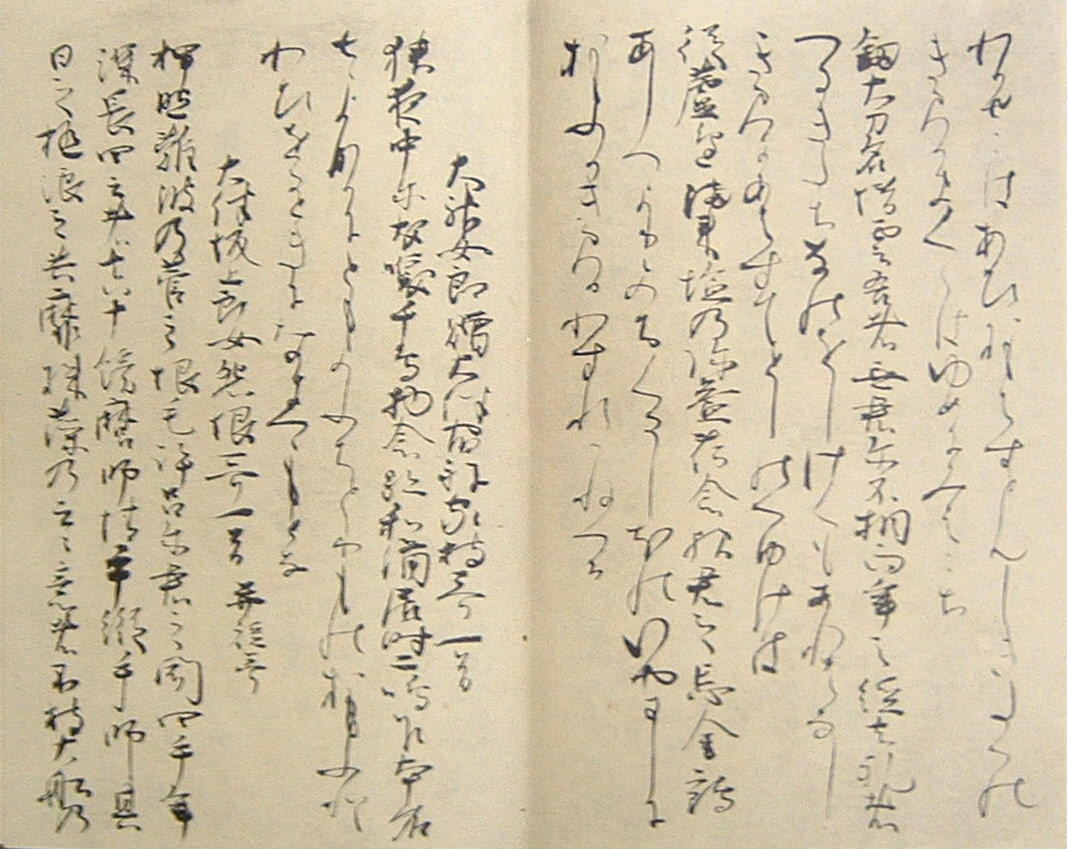 わかせこはあひおもはすともしきたへの
きみかまくらはゆめにみえこせ
剱大刀名惜雲吾者無君尓不相而年之經去礼者
つるきたちなのをしけくもわれはなし
きみにあはすてとしのへゆけは
從蘆邊満来塩乃弥益荷念歟君之忘金鶴
あしへよりみちくるしほのいやましに
おもふかきみかわすれかねつる
大神女郎贈大伴宿祢家持哥一首
狭夜中尓友喚千鳥物念跡和備居時二鳴乍本名
さよなかにともよふちとりものおもふと
わひをるときになきつゝもとな
大伴坂上郎女怨恨哥一首 并短哥
押照難波乃菅之根毛許呂尓君之聞四手年
深長四云者真十鏡磨師情乎縦手師其
日之極浪之共靡珠藻乃云々意者不持大船乃